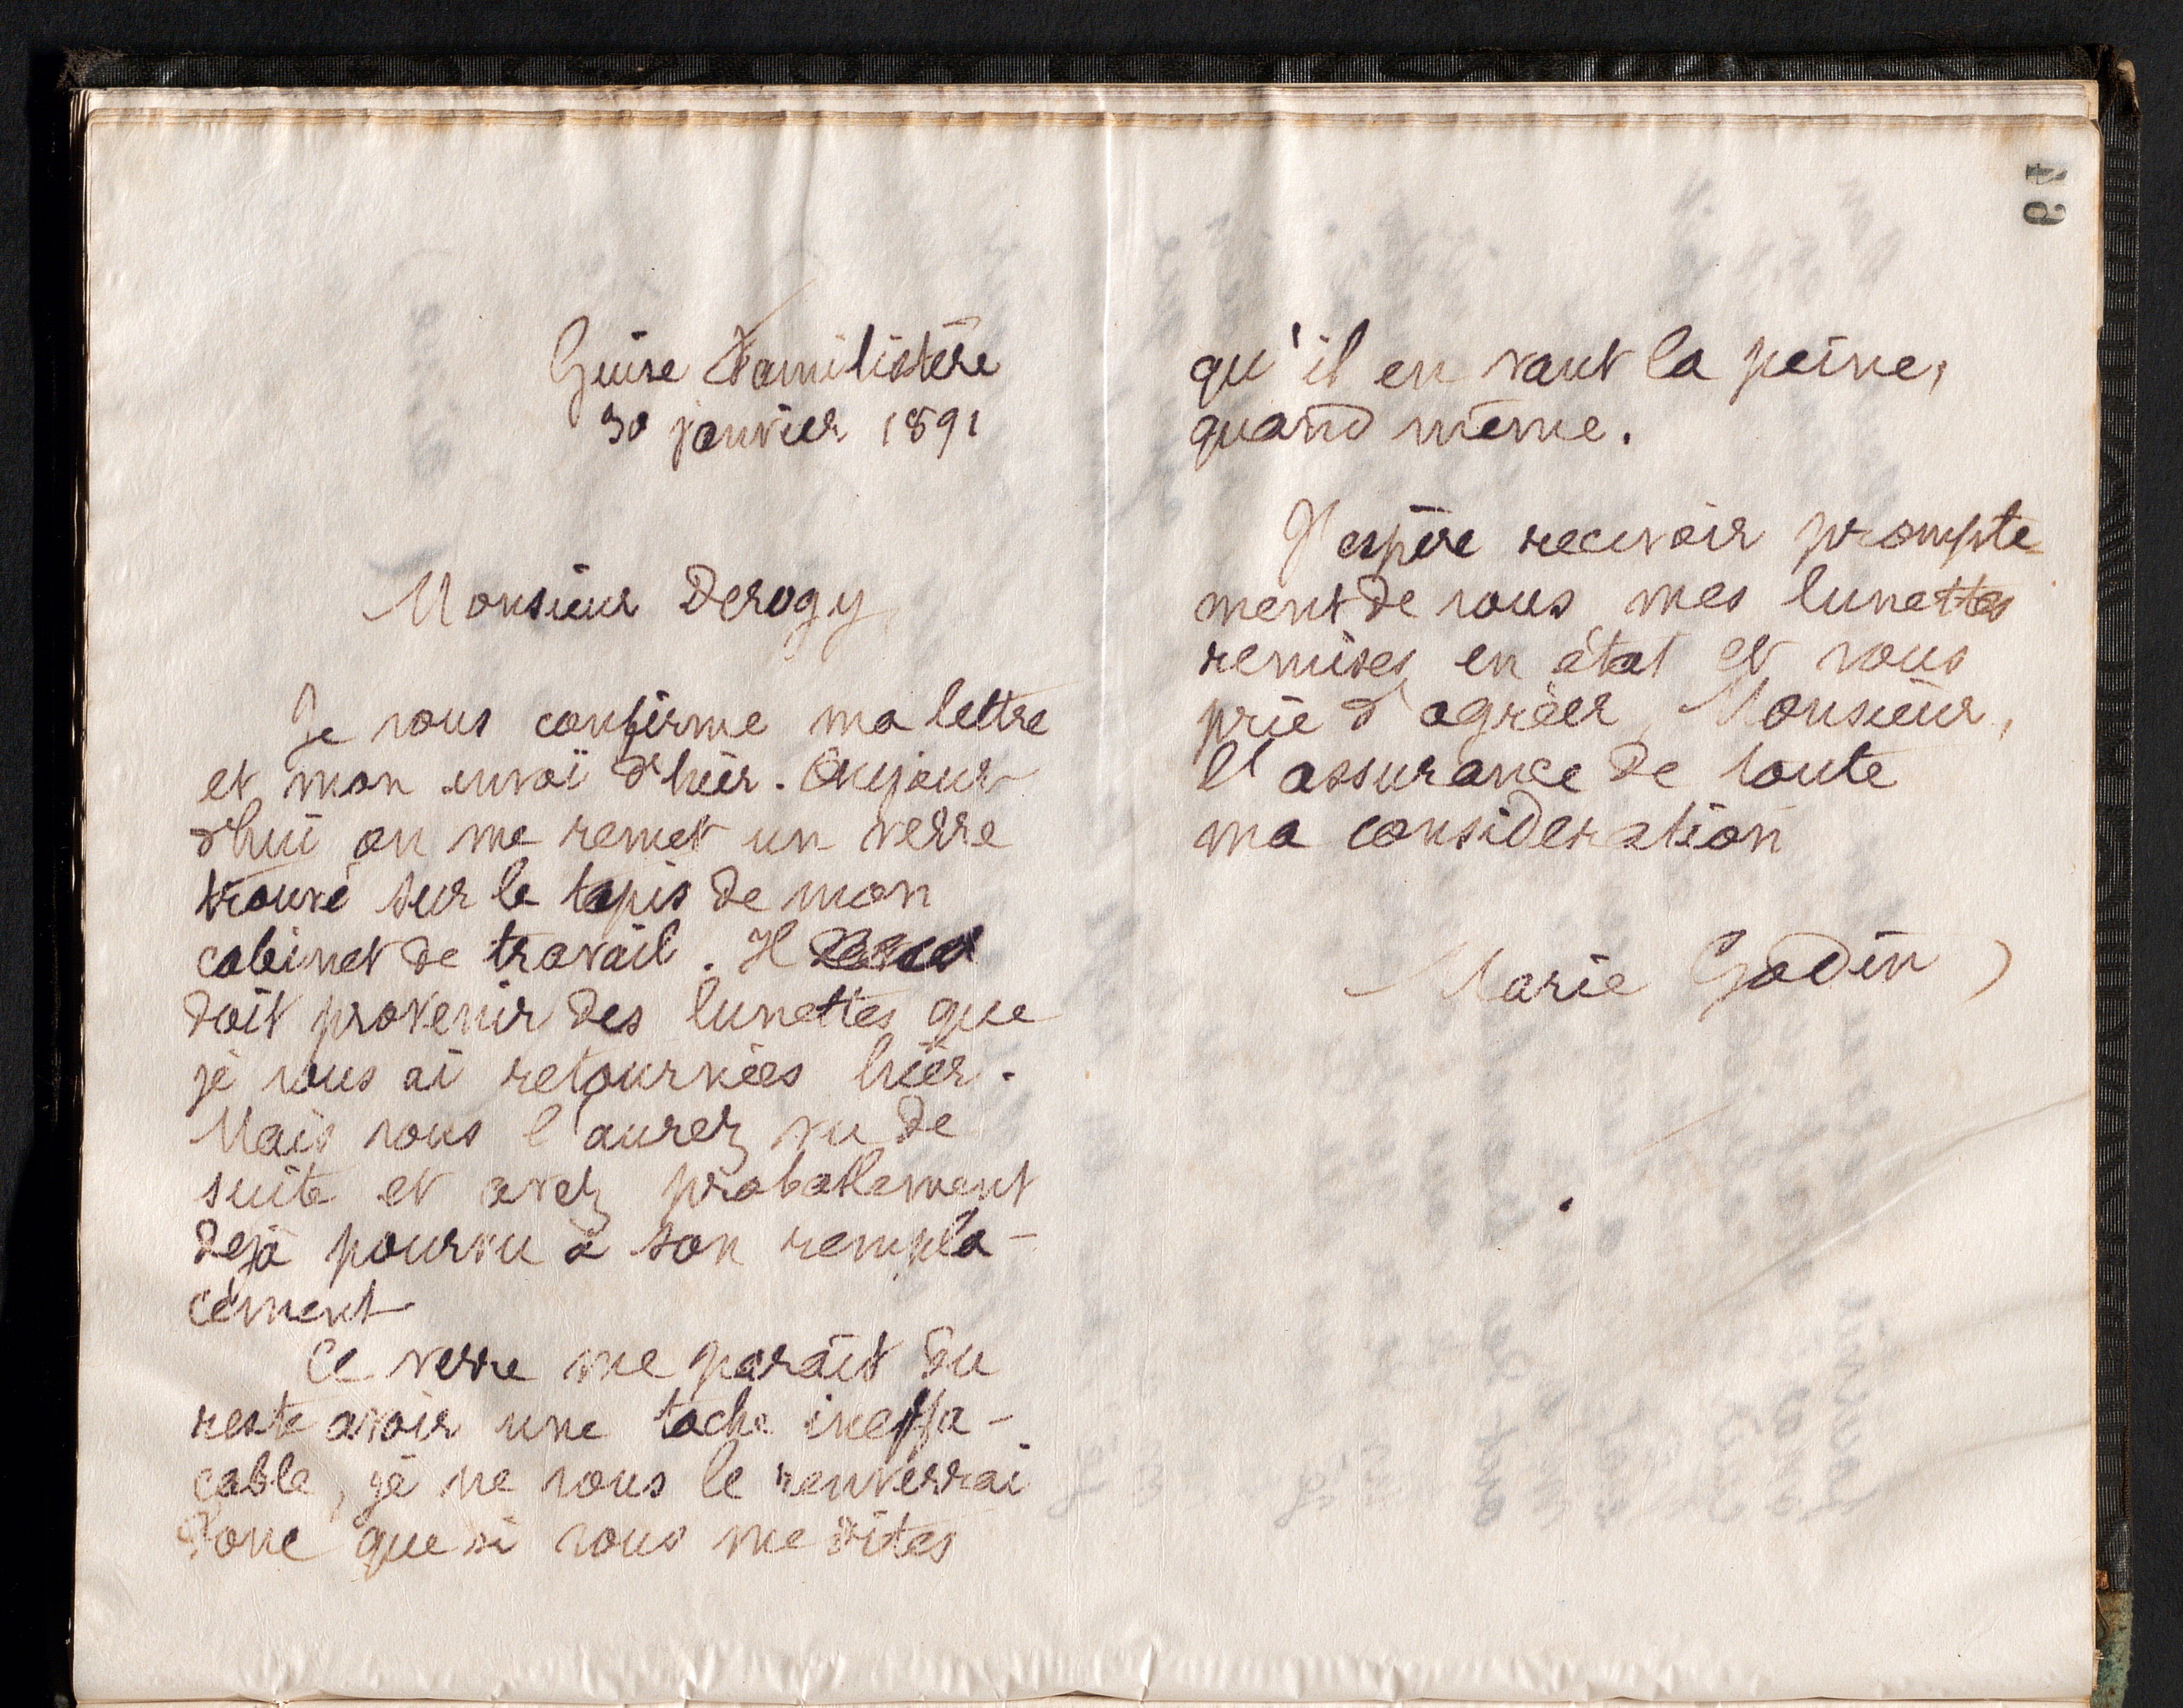 Guise Familistère
30 janvier 1891
Monsieur Derogy
Je vous confirme ma lettre
et mon envoi d'hier. Aujour-
d'hui on me remet un verre
trouvé sur le tapis de mon
cabinet de travail. Il
doit provenir des lunettes que
je vous ai retournées hier.
Mais vous l'aurez vu de
suite et avez probablement
déjà pourvu à son rempla-
cement
Ce verre me paraît du
reste avoir une tache ineffa-
çable, je ne vous le renverrai
donc que si vous me dites
49
qu'il en vaut la peine,
quand même.
J'espère recevoir prompte-
ment de vous mes lunettes
remises en état et vous
prie d'agréer, Monsieur,
l'assurance de toute
ma considération
Marie Godin